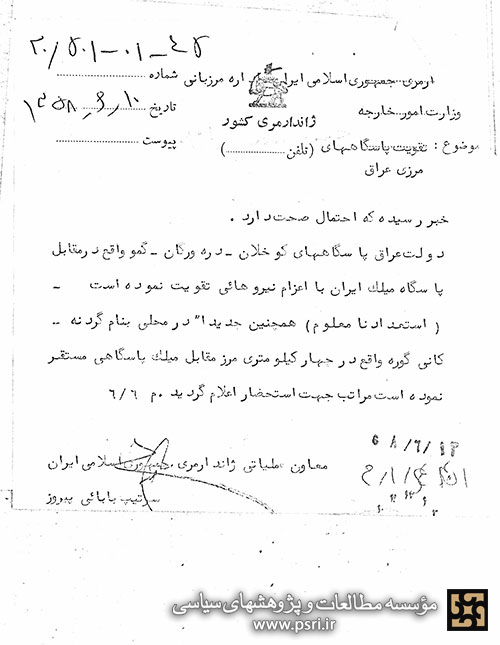 ۲۰/۵۰۱-۰۱-۴۵
ژاندارمری جمهوری اسلامی ایران اداره مرزبانی شماره
وزارت امور خارجه
ژاندارمری کشور
تاریخ ۱۳۵۸٫۶٫۱۰
پیوست
موضوع : تقویت پاسگاههای (تلفن)
مرزی عراق
خبر رسیده که احتمال صحت دارد .
دولت عراق پاسگاههای کوخلان - دره ورگان - گمو واقع در مقابل
پاسگاه میلک ایران با اعزام نیروهائی تقویت نموده است -
( استعداد نامعلوم ) همچنین جدیدا" در محلی بنام گردنه -
کانی گوره واقع در چهار کیلومتری مرز مقابل میلک پاسگاهی مستقر
نموده است مراتب جهت استحضار اعلام گردید .م ۶/۶
معاون عملیاتی ژاندارمری جمهوری اسلامی ایران
سرتیپ بابائی پیروز
۵۸/۶/۱۳
مؤسسه مطالعات و پژوهشهای سیاسی
www.psri.ir